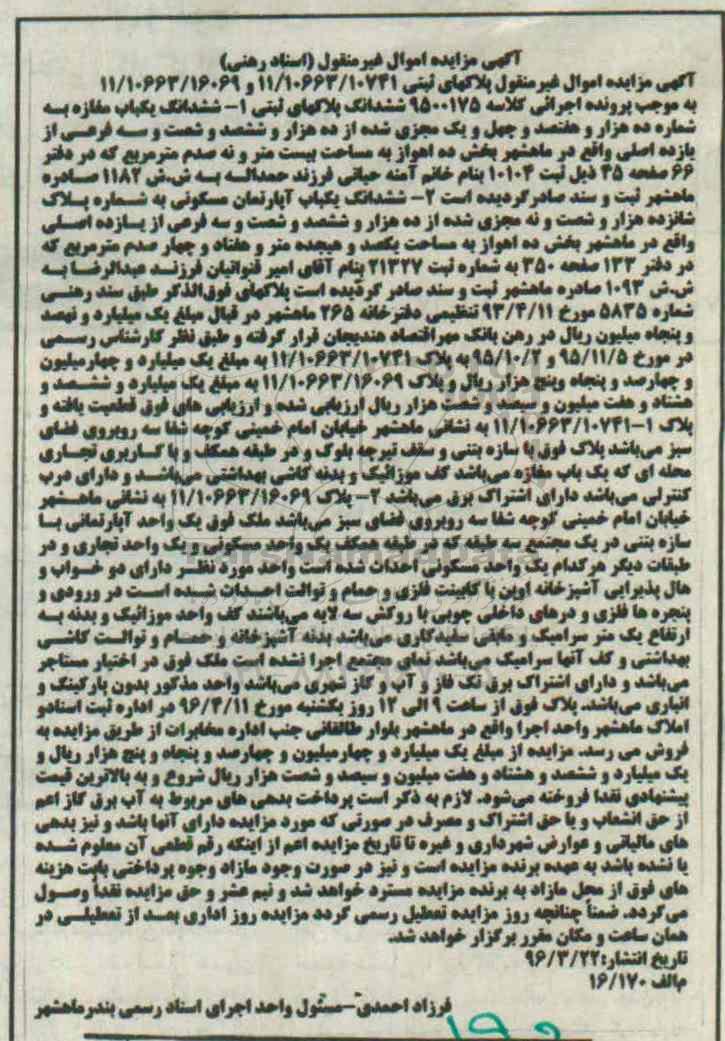 آگهی مزایده اموال غیرمنقول (اسناد رهنی)
آگهی مزایده اموال غیرمنقول پلاکهای ثبتی ۱۱/۱۰۶۶۳/۱۰۷۴۱ و ۱۱/۱۰۶۶۳/۱۶۰۶۹
به موجب پرونده اجرائی کلاسه ۹۵۰۰۱۷۵ ششدانگ پلاکهای ثبتی ۱- ششدانگ یکباب مغازه به
شماره ده هزار و هفتصد و چهل و یک مجزی شده از ده هزار و ششصد و شصت و سه فرعی از
یازده اصلی واقع در ماهشهر بخش ده اهواز به مساحت بیست متر و نه صدم مترمربع که در دفتر
۶۶ صفحه ۴۵ ذیل ثبت ۱۰۱۰۴ بنام خانم آمنه حیاتی فرزند حمداله به ش.ش ۱۱۸۲ صادره
ماهشهر ثبت و سند صادرگردیده است ۲- ششدانگ یکباب آپارتمان مسکونی به شماره پلاک
شانزده هزار و شصت و نه مجزی شده از ده هزار و ششصد و شصت و سه فرعی از یازده اصلی
واقع در ماهشهر بخش ده اهواز به مساحت یکصد و هیجده متر و هفتاد و چهار صدم مترمربع که
در دفتر ۱۳۳ صفحه ۳۵۰ به شماره ثبت ۲۱۳۲۷ بنام آقای امیر قنواتیان فرزند عبدالرضا به
ش.ش ۱۰۹۳ صادره ماهشهر ثبت و سند صادر گردیده است پلاکهای فوق‌الذکر طبق سند رهنی
شماره ۵۸۳۵ مورخ ۹۳/۴/۱۱ تنظیمی دفترخانه ۲۶۵ ماهشهر در قبال مبلغ یک میلیارد و نهصد
و پنجاه میلیون ریال در رهن بانک مهراقتصاد هندیجان قرار گرفته و طبق نظر کارشناس رسمی
در مورخ ۹۵/۱۱/۵ و ۹۵/۱۰/۲ به پلاک ۱۱/۱۰۶۶۳/۱۰۷۴۱ به مبلغ یک میلیارد و چهارمیلیون
و چهارصد و پنجاه وپنج هزار ریال و پلاک ۱۱/۱۰۶۶۳/۱۶۰۶۹ به مبلغ یک میلیارد و ششصد و
هشتاد و هفت میلیون و سیصد و شصت هزار ریال ارزیابی شده و ارزیابی های فوق قطعیت یافته و
پلاک ۱-۱۱/۱۰۶۶۳/۱۰۷۴۱ به نشانی ماهشهر خیابان امام خمینی کوچه شفا سه روبروی فضای
سبز می‌باشد پلاک فوق با سازه بتنی و سقف تیرچه بلوک و در طبقه همکف و با کاربری تجاری
محله ای که یک باب مغازه می‌باشد کف موزائیک و بدنه کاشی بهداشتی می‌باشد و دارای درب
کنترلی می‌باشد دارای اشتراک برق می‌باشد ۲- پلاک ۱۱/۱۰۶۶۳/۱۶۰۶۹ به نشانی ماهشهر
خیابان امام خمینی کوچه شفا سه روبروی فضای سبز می‌باشد ملک فوق یک واحد آپارتمانی با
سازه بتنی در یک مجتمع سه طبقه که در طبقه همکف یک واحد مسکونی و یک واحد تجاری و در
طبقات دیگر هرکدام یک واحد مسکونی احداث شده است واحد مورد نظر دارای دو خواب و
هال پذیرایی آشپزخانه اوپن با کابینت فلزی و حمام و توالت احداث شده است در ورودی و
پنجره ها فلزی و درهای داخلی چوبی با روکش سه لایه می‌باشند کف واحد موزائیک و بدنه به
ارتفاع یک متر سرامیک و مابقی سفیدکاری می‌باشد بدنه آشپزخانه و حمام و توالت کاشی
بهداشتی و کف آنها سرامیک می‌باشد نمای مجتمع اجرا نشده است ملک فوق در اختیار مستاجر
می‌باشد و دارای اشتراک برق تک فاز و آب و گاز شهری می‌باشد واحد مذکور بدون پارکینگ و
انباری می‌باشد. پلاک فوق از ساعت ۹ الی ۱۲ روز یکشنبه مورخ ۹۶/۴/۱۱ در اداره ثبت اسنادو
املاک ماهشهر واحد اجرا واقع در ماهشهر بلوار طالقانی جنب اداره مخابرات از طریق مزایده به
فروش می رسد. مزایده از مبلغ یک میلیارد و چهارمیلیون و چهارصد و پنجاه و پنج هزار ریال و
یک میلیارد و ششصد و هشتاد و هفت میلیون و سیصد و شصت هزار ریال شروع و به بالاترین قیمت
پیشنهادی نقدا فروخته می‌شود. لازم به ذکر است پرداخت بدهی های مربوط به آب برق گاز اعم
از حق انشعاب و یا حق اشتراک و مصرف در صورتی که مورد مزایده دارای آنها باشد و نیز بدهی
های مالیاتی و عوارض شهرداری و غیره تا تاریخ مزایده اعم از اینکه رقم قطعی آن معلوم شده
یا نشده باشد به عهده برنده مزایده است و نیز در صورت وجود مازاد وجوه پرداختی بابت هزینه
های فوق از محل مازاد به برنده مزایده مسترد خواهد شد و نیم عشر و حق مزایده نقداً وصول
می‌گردد. ضمناً چنانچه روز مزایده تعطیل رسمی گردد مزایده روز اداری بعد از تعطیلی در
همان ساعت و مکان مقرر برگزار خواهد شد.
تاریخ انتشار:۹۶/۳/۲۲
م‌الف ۱۶/۱۷۰
فرزاد احمدی-مسئول واحد اجرای اسناد رسمی بندرماهشهر